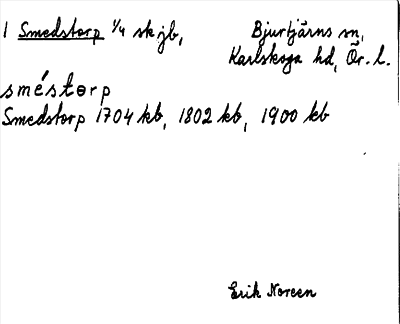 1 Smedstorp 1/4 skjb, Bjurtjärns sn,
Karlskoga hd, Ör. l.
sméstɵrp
Smedstorp 1704 kb, 1802 kb, 1900 kb
Erik Noreen